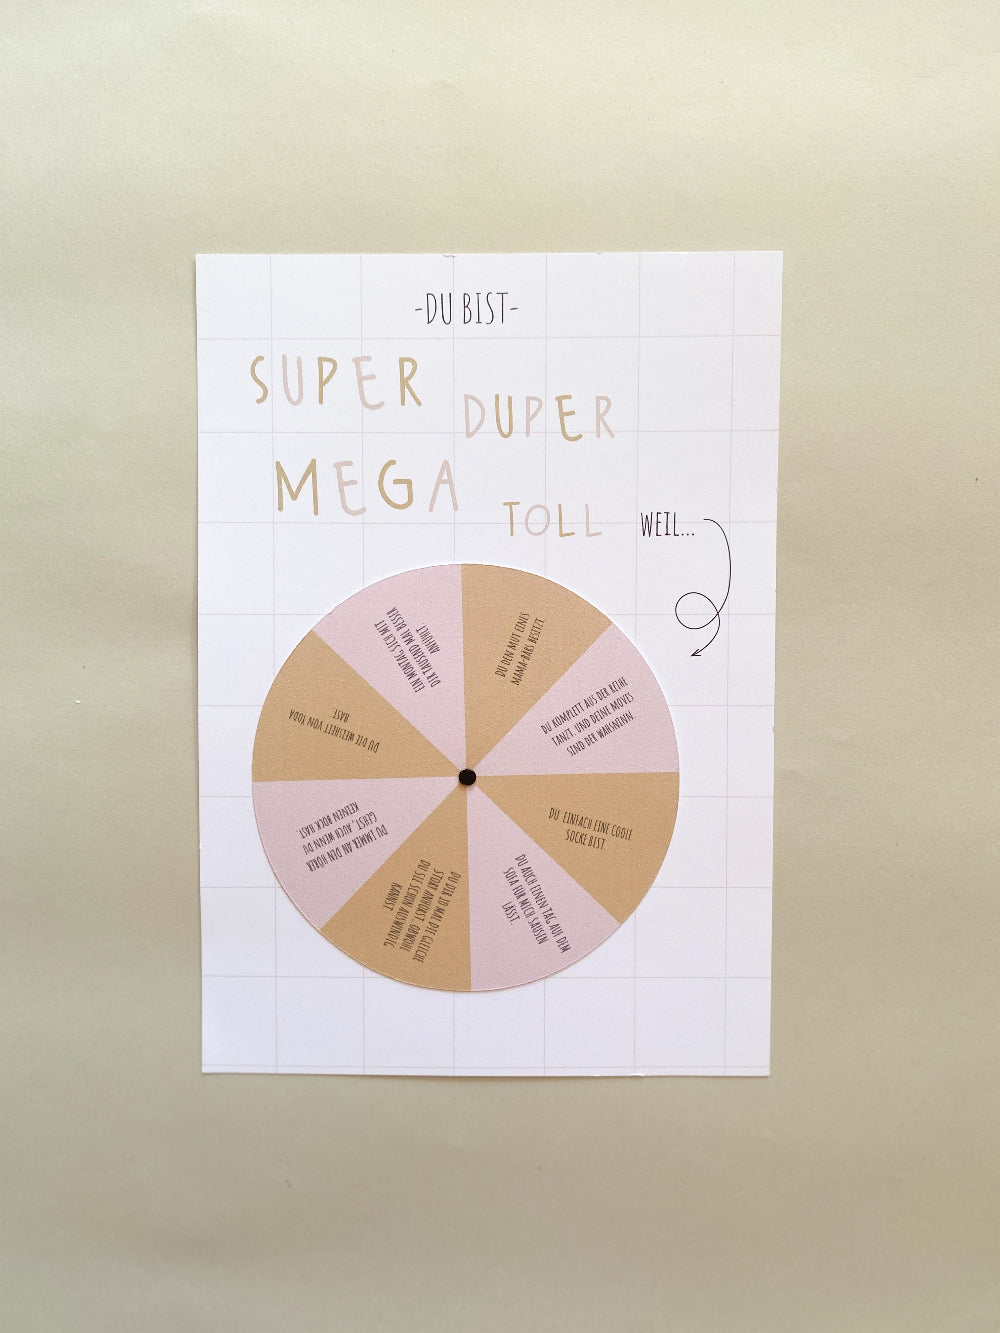 -DU BIST-
SUPER
DUPER
MEGA
TOLL
WEIL...
DU DEN MUT EINES
MAMA-BÄRS BESITZT.
DU KOMPLETT AUS DER REIHE
TANZT. UND DEINE MOVES
SIND DER WAHSNINN.
DU EINFACH EINE COOLE
SOCKE BIST.
DU AUCH EINEN TAG AUF DEM
SOFA FÜR MICH SAUSEN
LÄSST.
DU DIR 10 MAL DIE GLEICHE
STORY ANHÖRST, OBWOHL
DU SIE SCHON AUSWENDIG
KANNST.
DU IMMER AN DEN HÖRER
GEHST, AUCH WENN DU
KEINEN BOCK HAST.
DU DIE WEISHEIT VON YODA
HAST.
EIN MONTAG SICH MIT
DIR TAUSEND MAL BESSER
ANFÜHLT.